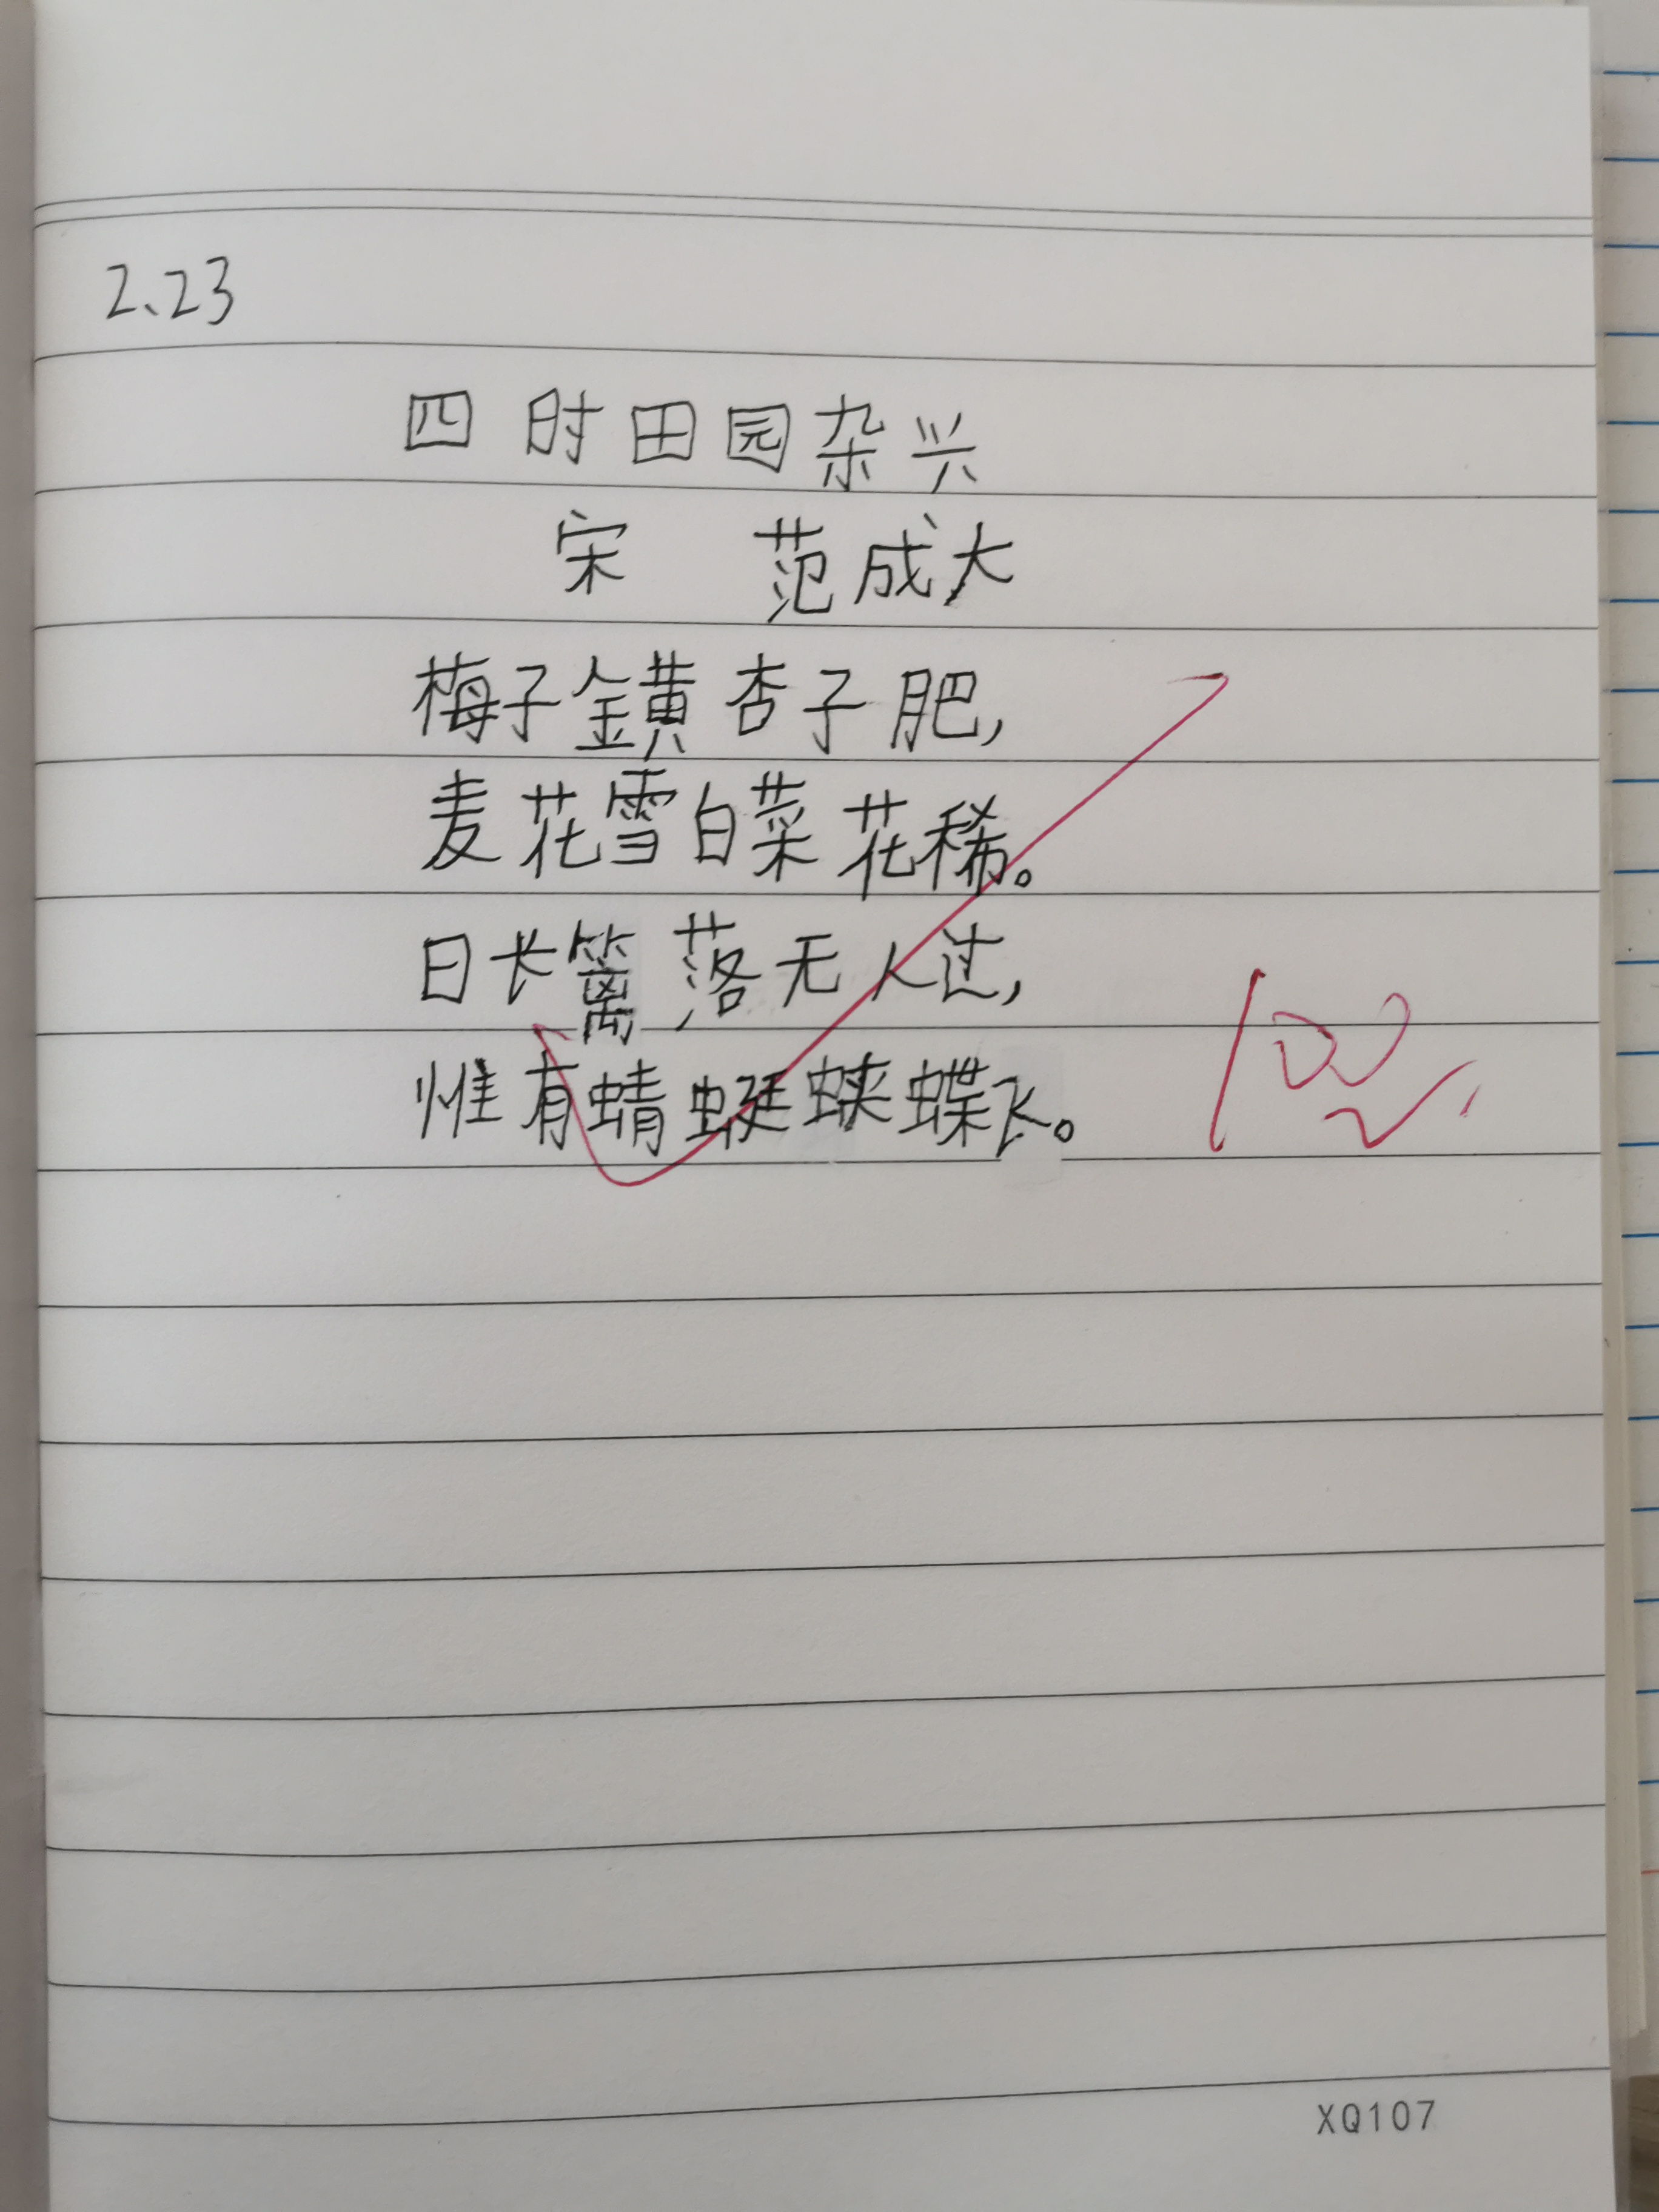 2、23
四时田园杂兴
宋 范成大
梅子金黄杏子肥,
麦花雪白菜花稀。
日长篱落无人过,
惟有蜻蜓蛱蝶飞。
100
XQ107